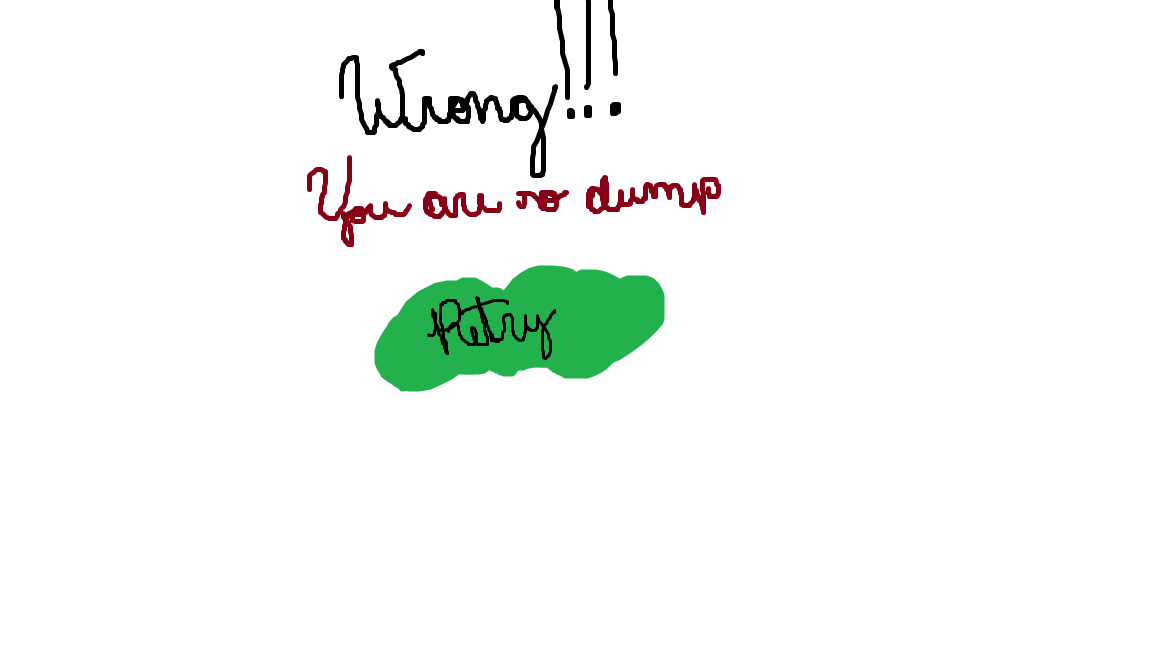 Wrong!!!
You are so dump
Retry